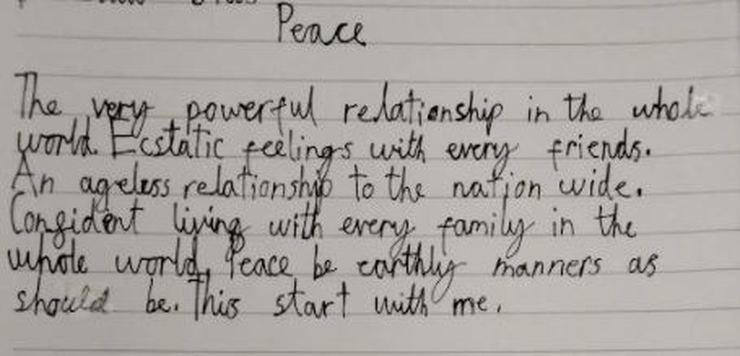 Peace
The very powerful relationship in the whole
world. Ecstatic feelings with every friends.
An ageless relationship to the nation wide.
Confident living with every family in the
whole world, Peace be earthly manners as
should be. This start with me.